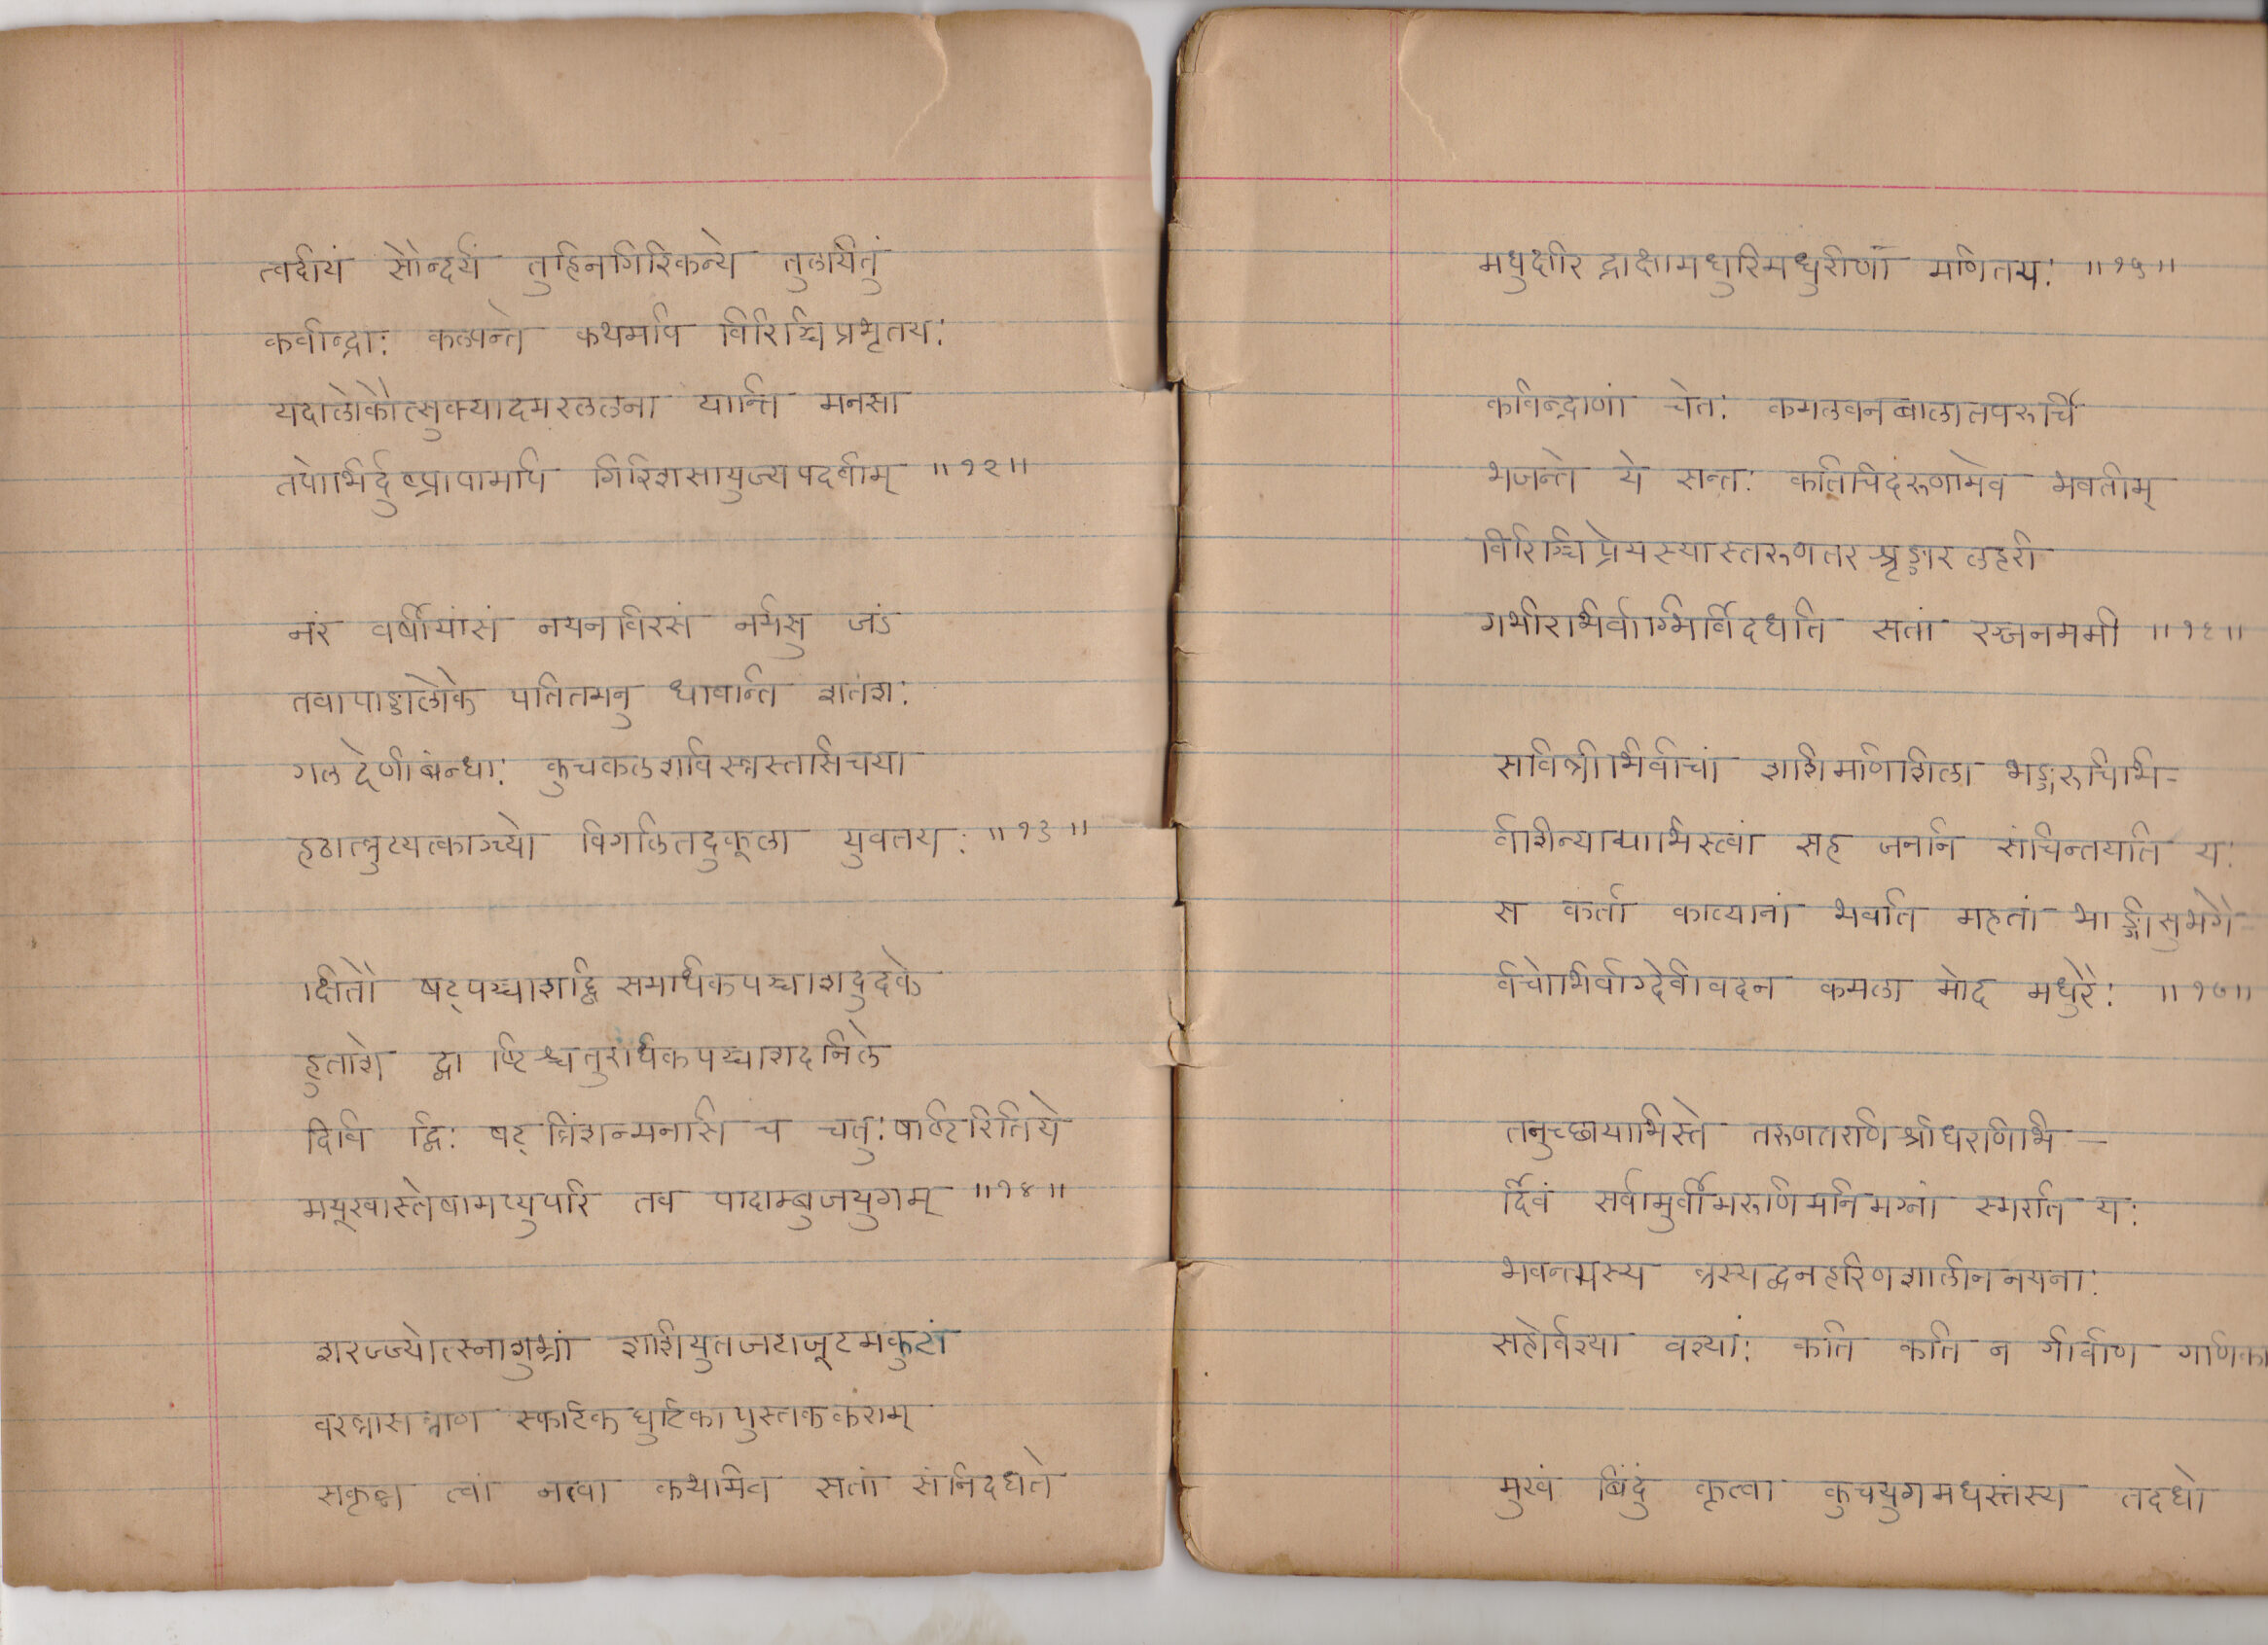 त्वदीयं सौन्दर्यं तुहिनगिरिकन्ये तुलयितुं
कवीन्द्राः कल्पन्ते कथमपि विरिञ्चिप्रभृतयः
यदालोकौत्सुक्यादमरललना यान्ति मनसा
तपोभिर्दुष्प्रापामपि गिरिशसायुज्यपदवीम् ॥१२॥
नरं वर्षीयांसं नयनविरसं नर्मसु जडं
तवापाङ्गालोके पतितमनु धावन्ति शतशः
गलद्वेणीबंन्धाः कुचकलशविस्रस्तसिचया
हठात्त्रुट्यत्काञ्च्यो विगलितदुकूला युवतयः ॥१३॥
क्षितौ षट्पञ्चाशद्द्वि समधिकपञ्चाशदुदके
हुताशे द्वा ष्टिश्चतुरधिकपञ्चाशदनिले
दिवि द्विः षट्त्रिंशन्मनसि च चतुःषष्टिरितिये
मयूखास्तेषामप्युपरि तव पादाम्बुजयुगम् ॥१४॥
शरज्ज्योत्स्नाशुभ्रां शशियुतजटाजूटमकुटां
वरत्रासत्राण स्फटिकघुटिकापुस्तककराम्
सकृन्न त्वां नत्वा कथमिव सतां संनिदधते
मधुक्षीरद्राक्षामधुरिमधुरीणां भणितयः ॥१५॥
कविन्द्राणां चेतः कमलवनबालातपरुचिं
भजन्ते ये सन्तः कतिचिदरुणामेव भवतीम्
विरिञ्चिप्रेयस्यास्तरुणतरश्रृङ्गारलहरी
गभीराभिर्वाग्भिर्विदधति सतां रञ्जनममी ॥१६॥
सवित्रीभिर्वाचां शशिमणिशिला भङ्गरुचिभि-
र्वशिन्याद्याभिस्त्वां सह जननि संचिन्तयति यः
स कर्ता काव्यानां भवति महतां भङ्गीसुभगै
र्वचोभिर्वाग्देवीवदन कमला मोद मधुरैः ॥१७॥
तनुच्छायाभिस्ते तरुणतरणिश्रीधरणिभि-
र्दिवं सर्वामुर्वीमरुणिमनिमग्नां स्मरति यः
भवन्त्यस्य त्रस्यद्वनहरिणशालीननयनाः
सहोर्वश्या वश्याः कति कति न गीर्वाण गणिका
मुखं बिंदुं कृत्वा कुचयुगमधस्तस्य तदधो